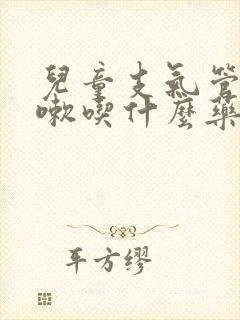 兒童支氣管
嗽喫什麼藥
平方繆